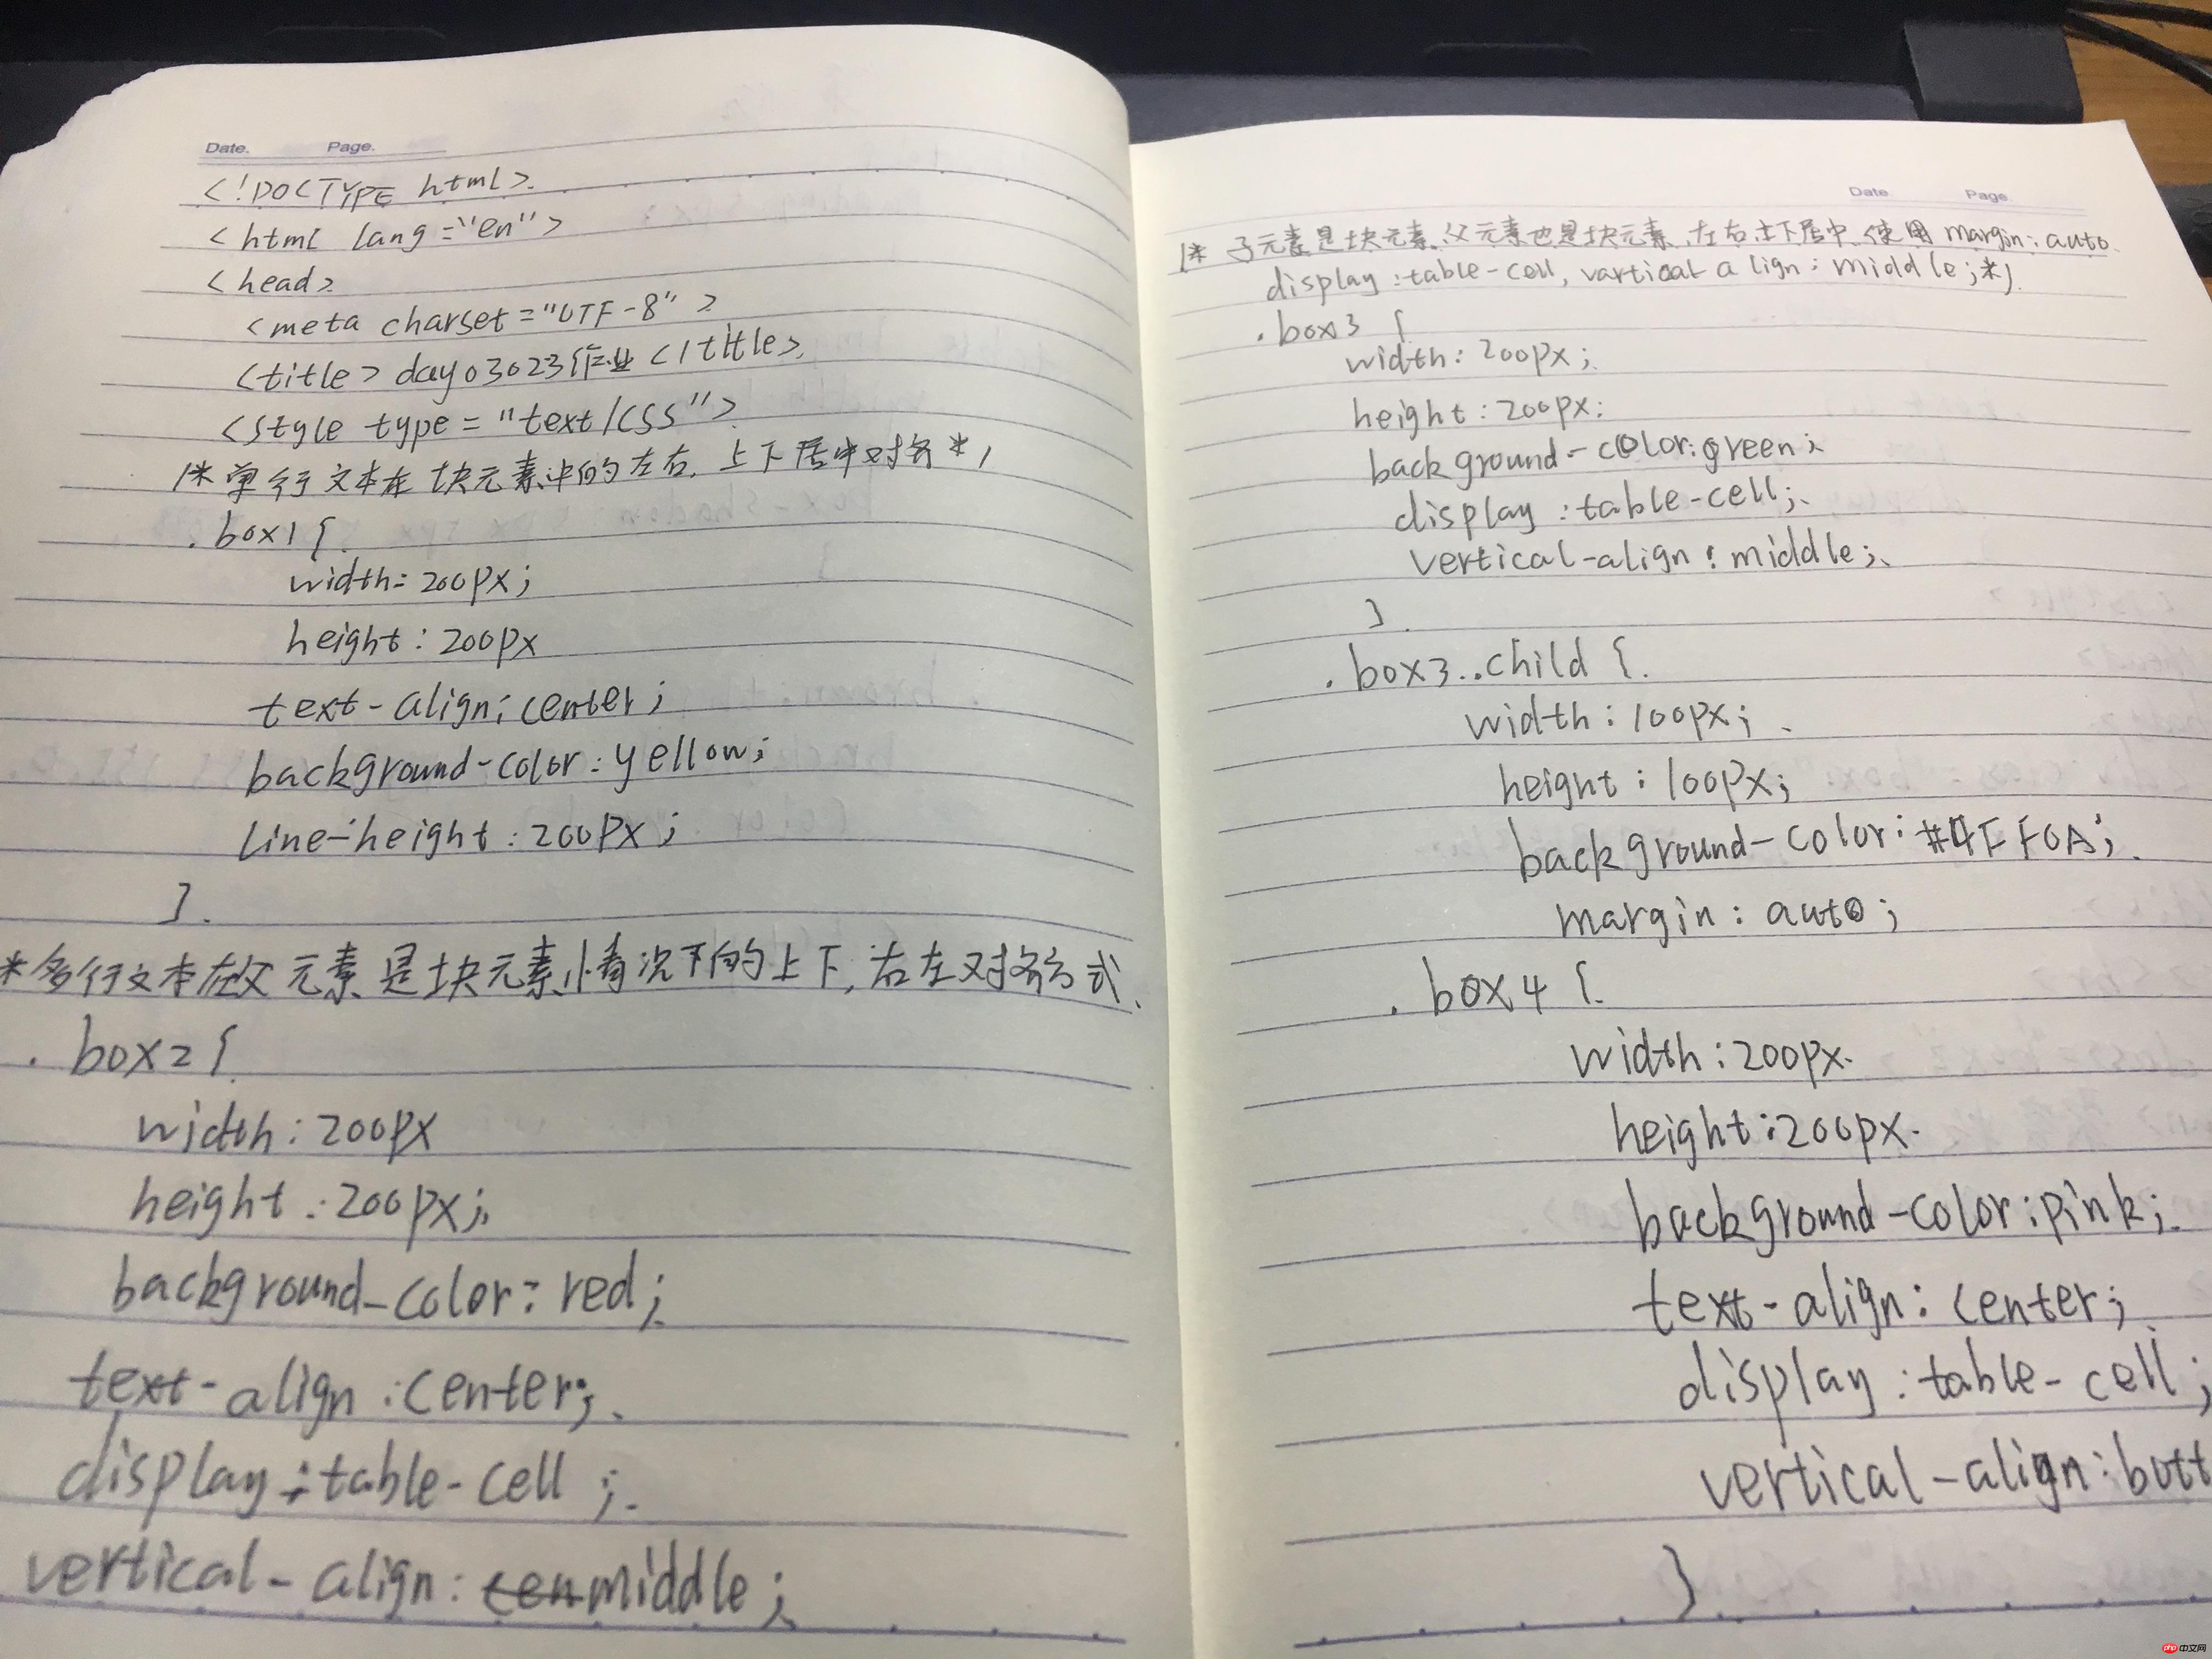 Date. Page.
<!DOCTYPE html>
<html lang="en">
<head>
<meta charset="UTF-8">
<title>day03023作业</title>
<style type="text/css">
/*单行文本在块元素中的左右,上下居中对齐*/
.box1{
width:200px;
height:200px
text-align:center;
background-color:yellow;
line-height:200px;
}
*多行文本在父元素是块元素情况下的上下,右左对齐方式
.box2{
width:200px
height:200px;
background-color:red;
text-align:center;
display:table-cell;
vertical-align:middle;
Date Page
/*子元素是块元素,父元素也是块元素,左右上下居中,使用margin:auto
display:table-cell,vartical align:middle;*/
.box3 {
width:200px;
height:200px;
background-color:green;
display:table-cell;
vertical-align:middle;
}
.box3..child {
width:100px;
height:100px;
background-color:#4FF0A;
margin:auto;
.box4 {
width:200px.
height:200px.
background-color:pink;
text-align:center;
display:table-cell;
vertical-align:bott
}
php 中文网